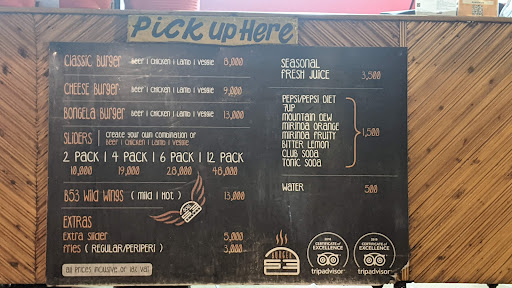 Pick up Here
Classic Burger Beef | Chicken | Lamb | Veggie 8,000
Cheese Burger Beef | Chicken | Lamb | Veggie 9,000
Bongela Burger Beef | Chicken | Lamb | Veggie 13,000
SLIDERS | Create your own combination of
Beef | Chicken | Lamb | Veggie
2 PACK | 4 PACK | 6 PACK | 12 PACK
10,000 19,000 28,000 48,000
B53 Wild Wings ( Mild | Hot ) 13,000
EXTRAS
Extra Slider 5,000
Fries ( REGULAR/PERIPERI ) 3,000
All Prices inclusive of 18% VAT
SEASONAL
FRESH JUICE 3,500
PEPSI/PEPSI DIET
7UP
MOUNTAIN DEW
MIRINDA ORANGE
MIRINDA FRUITY
BITTER LEMON
CLUB SODA
TONIC SODA
1,500
WATER 500
BURGER
53
CERTIFICATE of
EXCELLENCE
tripadvisor
CERTIFICATE of
EXCELLENCE
tripadvisor